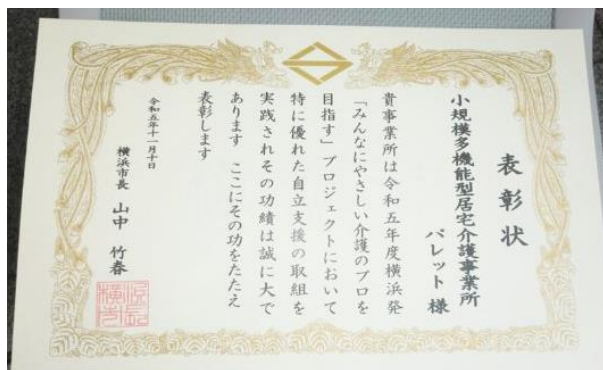 表彰状
小規模多機能型居宅介護事業所
パレット 様
貴事業所は令和五年度横浜発
「みんなにやさしい介護のプロを
目指す」プロジェクトにおいて
特に優れた自立支援の取組を
実践されその功績は誠に大で
あります ここにその功をたたえ
表彰します
令和五年十一月十日
横浜市長 山中 竹春